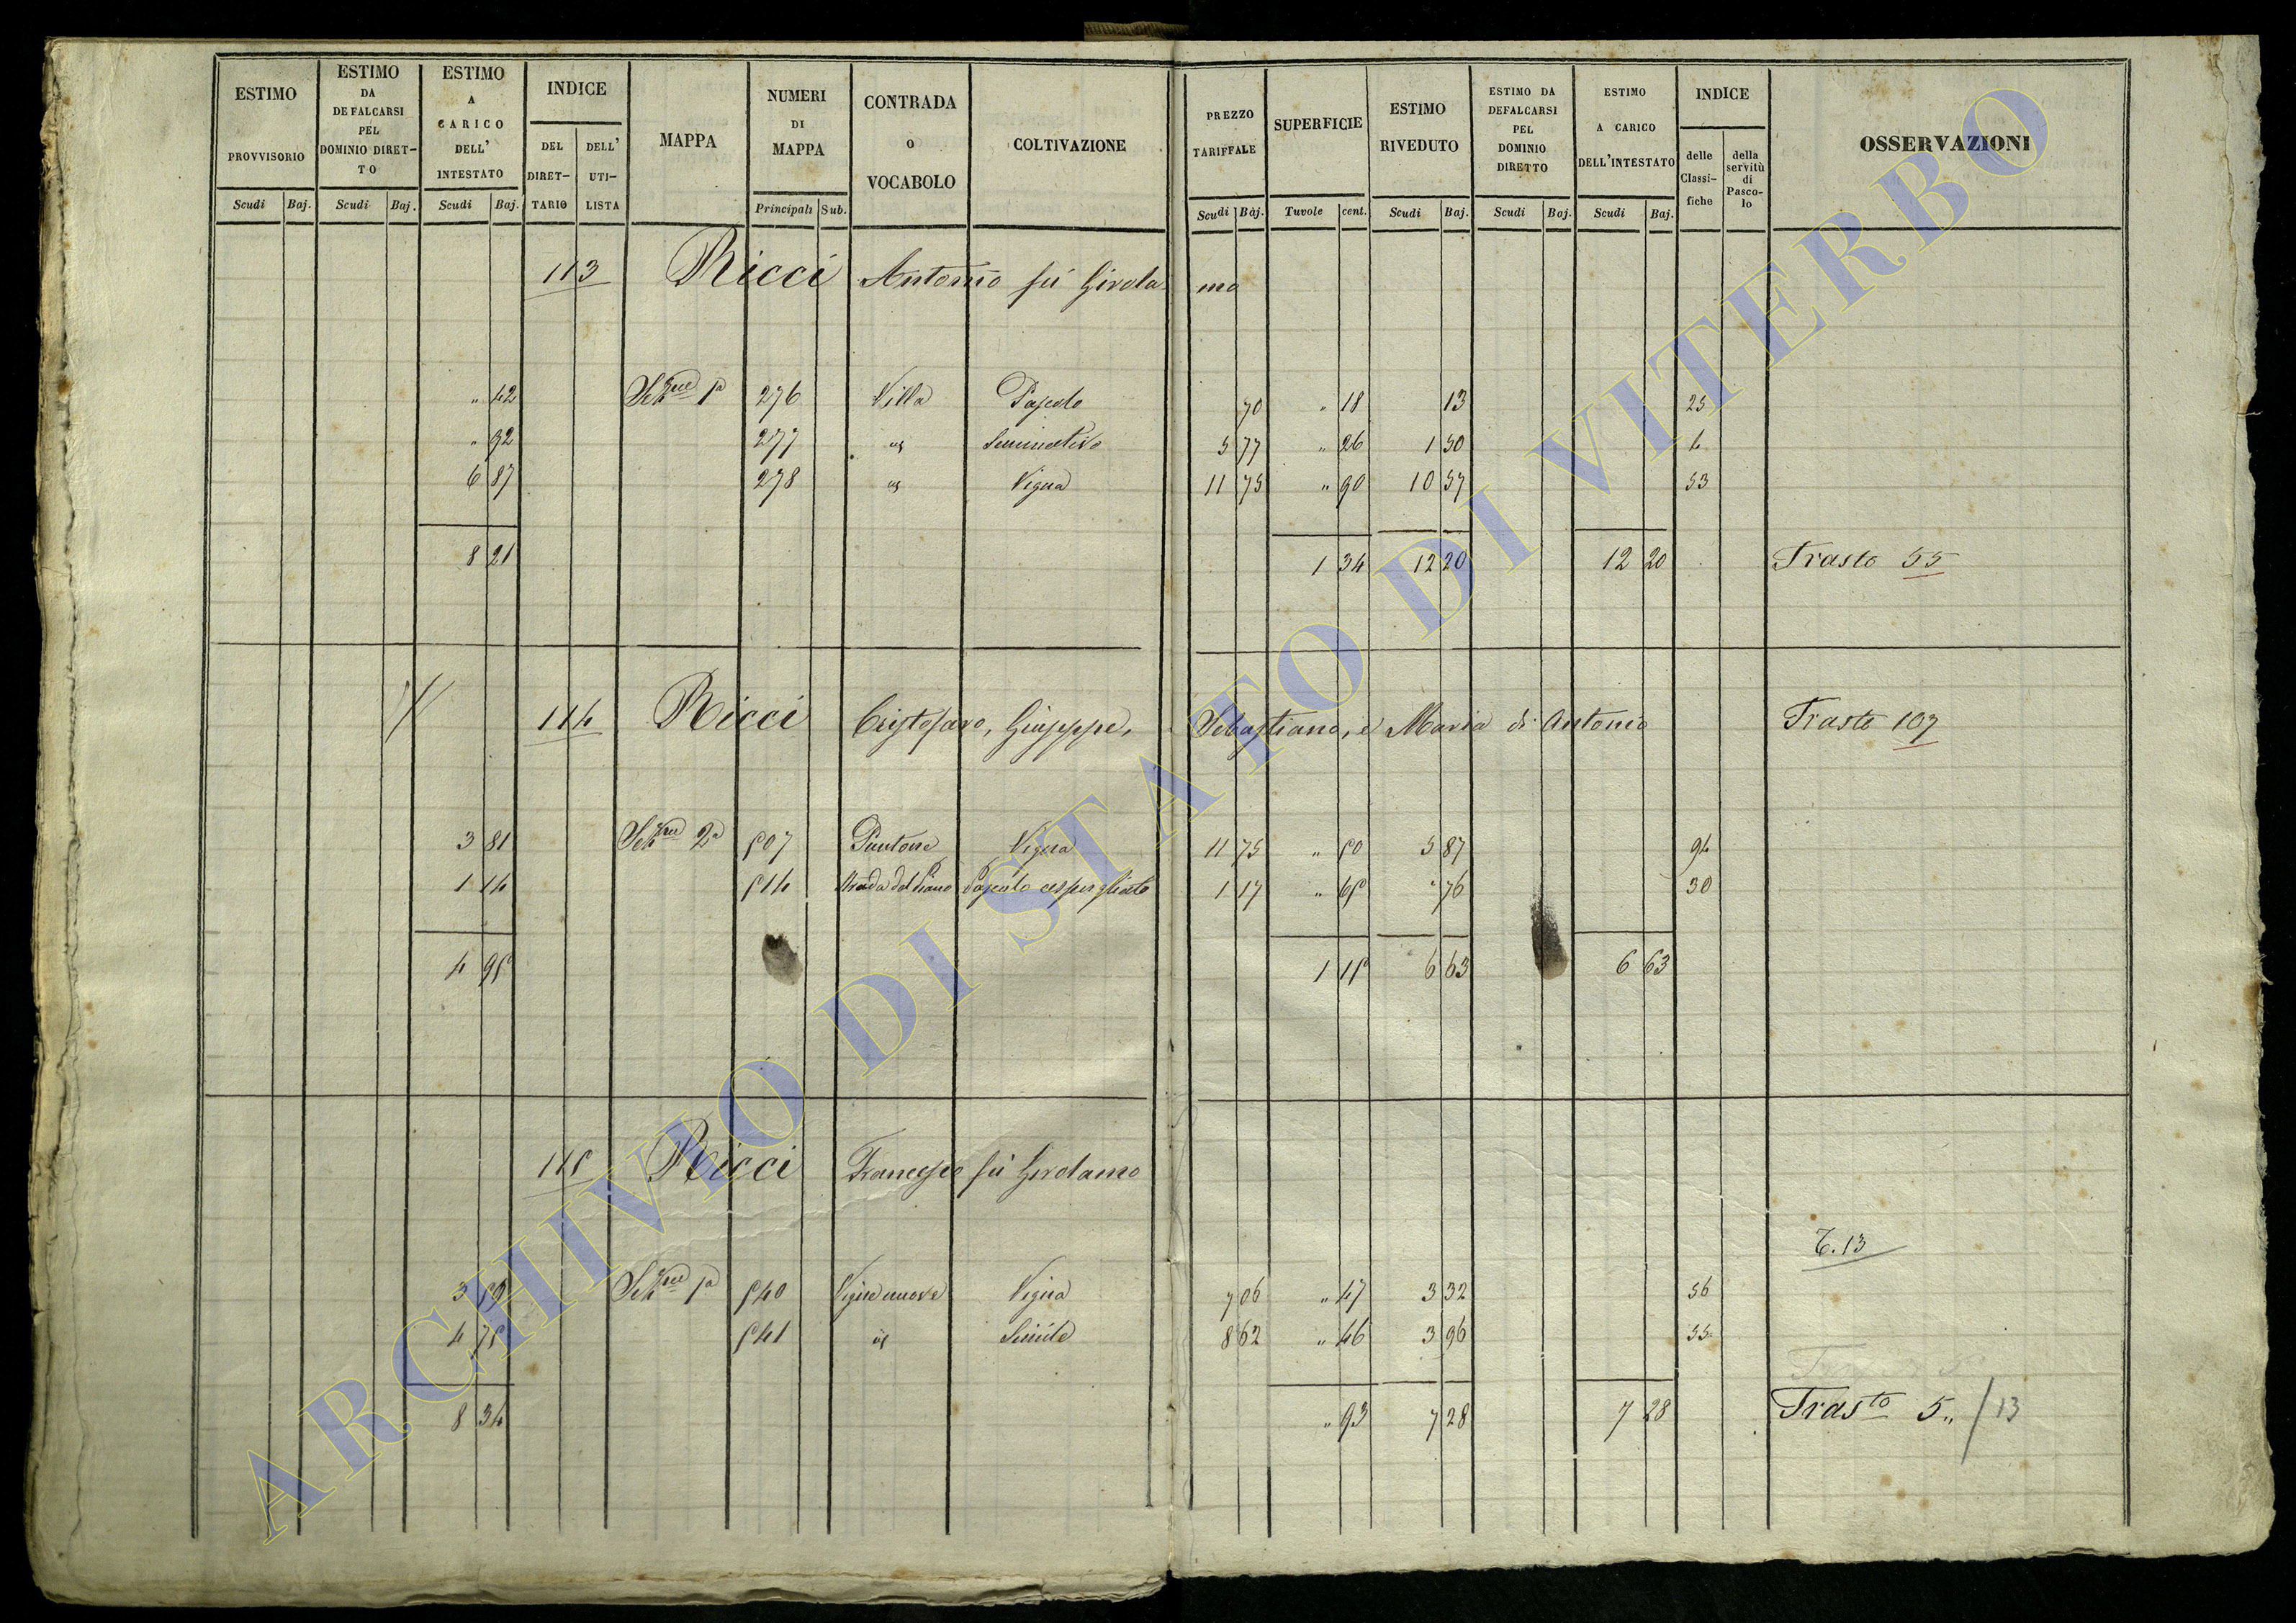 ESTIMO PROVVISORIO Scudi Baj.
ESTIMO DA DEFALCARSI PEL DOMINIO DIRET-TO Scudi Baj.
ESTIMO A CARICO DELL' INTESTATO Scudi Baj.
INDICE DEL DIRET-TARIO DELL' UTI-LISTA
MAPPA
NUMERI DI MAPPA Principali Sub.
CONTRADA O VOCABOLO
COLTIVAZIONE
PREZZO TARIFFALE Scudi Baj.
SUPERFICIE Tavole cent.
ESTIMO RIVEDUTO Scudi Baj.
ESTIMO DA DEFALCARSI PEL DOMINIO DIRETTO Scudi Baj.
ESTIMO A CARICO DELL'INTESTATO Scudi Baj.
INDICE delle Classi-fiche della servitù di Pasco-lo
OSSERVAZIONI
113 Ricci Antonio fù Girola mo
" 42 Sezne 1a 276 Villa Pascolo 70 " 18 13 25
" 92 277 " Seminativo 5 77 " 26 1 50 4
6 87 278 " Vigna 11 75 " 90 10 57 53
8 21 1 34 12 20 12 20 Trasto 55
114 Ricci Cristofaro, Giuseppe, Sebastiano, e Maria di Antonio Trasto 107
3 81 Sezne 2a 507 Puntone Vigna 11 75 " 50 5 87 94
1 14 514 Strada del Piano Pascolo cespugliato 1 17 " 65 " 76 30
4 95 1 15 6 63 6 63
115 Ricci Francesco fù Girolamo
T. 13
3 59 Sezne 1a 540 Vigne nuove Vigna 7 06 " 47 3 32 56
4 75 541 " Simile 8 62 " 46 3 96 55
8 34 " 93 7 28 7 28 Trasto 5 " / 13
ARCHIVIO DI STATO DI VITERBO